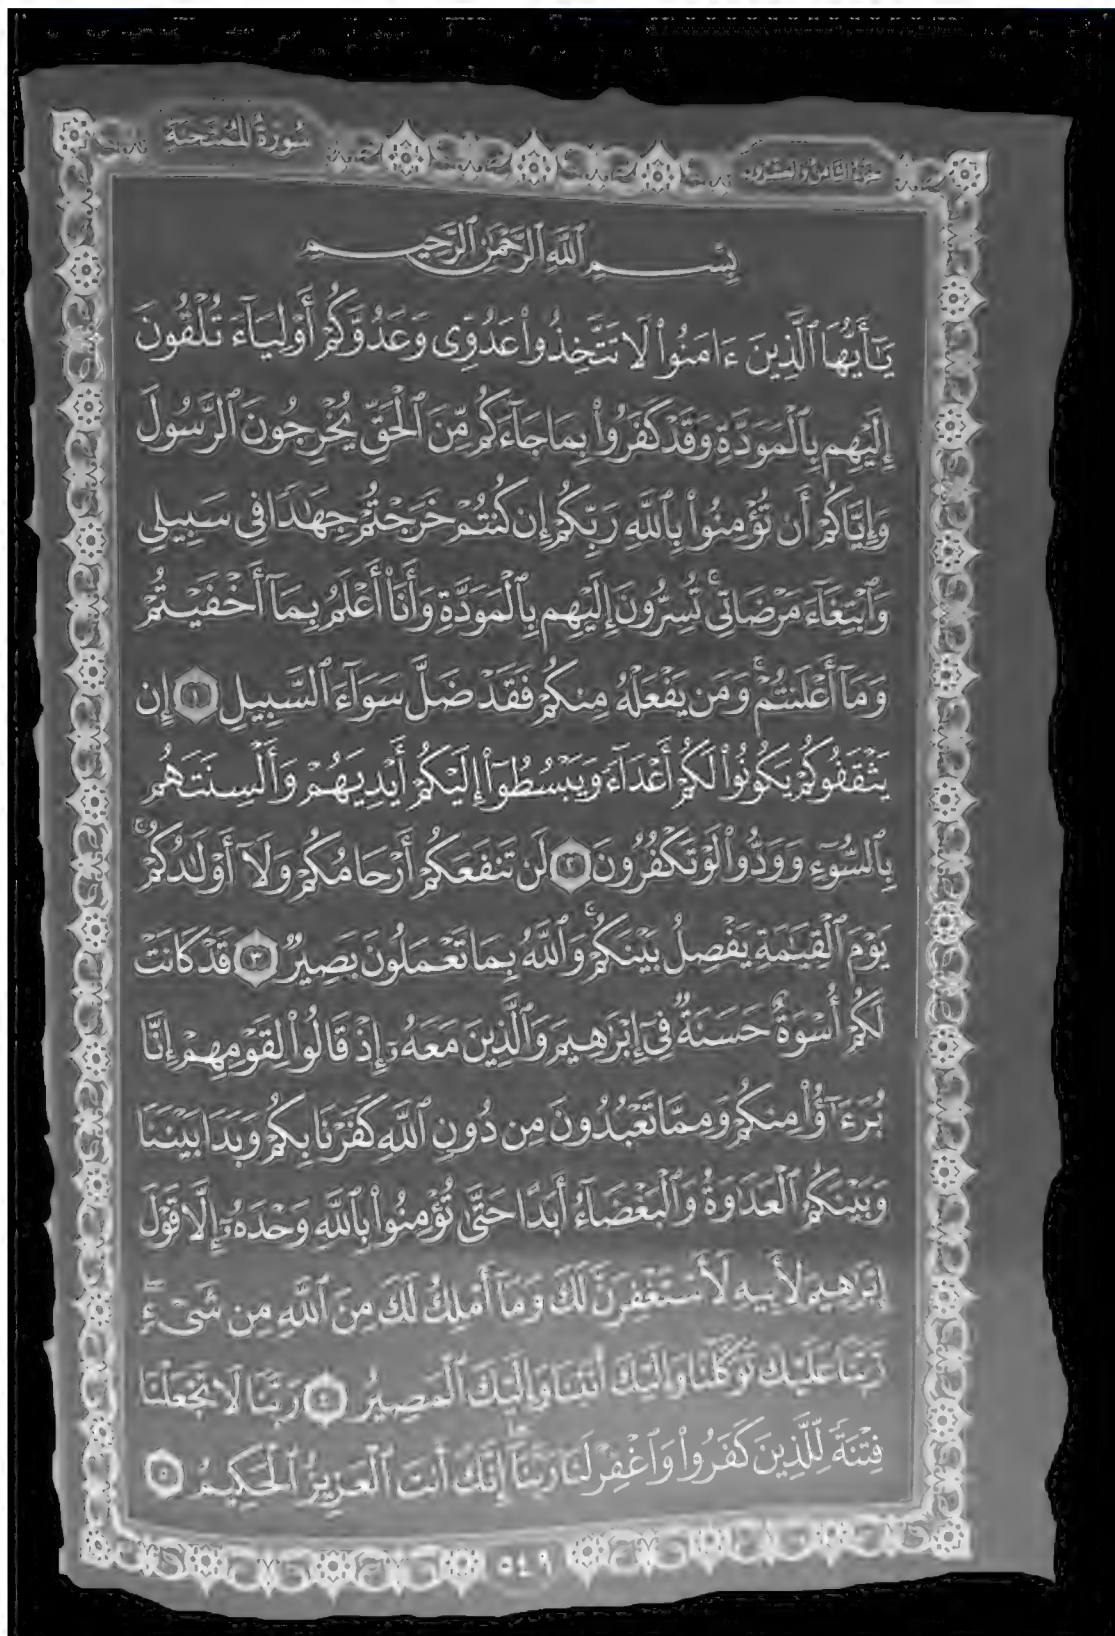 سُورَةُ المُمْتَحنَةِ
الجُزْءُ الثَّامِنُ وَالعِشْرُونَ
بِسْمِ ٱللَّهِ ٱلرَّحْمَٰنِ ٱلرَّحِيمِ
يَـٰٓأَيُّهَا ٱلَّذِينَ ءَامَنُوا۟ لَا تَتَّخِذُوا۟ عَدُوِّى وَعَدُوَّكُمْ أَوْلِيَآءَ تُلْقُونَ
إِلَيْهِم بِٱلْمَوَدَّةِ وَقَدْ كَفَرُوا۟ بِمَا جَآءَكُم مِّنَ ٱلْحَقِّ يُخْرِجُونَ ٱلرَّسُولَ
وَإِيَّاكُمْ أَن تُؤْمِنُوا۟ بِٱللَّهِ رَبِّكُمْ إِن كُنتُمْ خَرَجْتُمْ جِهَـٰدًا فِى سَبِيلِى
وَٱبْتِغَآءَ مَرْضَاتِى ۚ تُسِرُّونَ إِلَيْهِم بِٱلْمَوَدَّةِ وَأَنَا۠ أَعْلَمُ بِمَآ أَخْفَيْتُمْ
وَمَآ أَعْلَنتُمْ ۚ وَمَن يَفْعَلْهُ مِنكُمْ فَقَدْ ضَلَّ سَوَآءَ ٱلسَّبِيلِ ١ إِن
يَثْقَفُوكُمْ يَكُونُوا۟ لَكُمْ أَعْدَآءً وَيَبْسُطُوٓا۟ إِلَيْكُمْ أَيْدِيَهُمْ وَأَلْسِنَتَهُم
بِٱلسُّوٓءِ وَوَدُّوا۟ لَوْ تَكْفُرُونَ ٢ لَن تَنفَعَكُمْ أَرْحَامُكُمْ وَلَآ أَوْلَـٰدُكُمْ ۚ
يَوْمَ ٱلْقِيَـٰمَةِ يَفْصِلُ بَيْنَكُمْ ۚ وَٱللَّهُ بِمَا تَعْمَلُونَ بَصِيرٌ ٣ قَدْ كَانَتْ
لَكُمْ أُسْوَةٌ حَسَنَةٌ فِىٓ إِبْرَٰهِيمَ وَٱلَّذِينَ مَعَهُۥٓ إِذْ قَالُوا۟ لِقَوْمِهِمْ إِنَّا
بُرَءَٰٓؤُا۟ مِنكُمْ وَمِمَّا تَعْبُدُونَ مِن دُونِ ٱللَّهِ كَفَرْنَا بِكُمْ وَبَدَا بَيْنَنَا
وَبَيْنَكُمُ ٱلْعَدَٰوَةُ وَٱلْبَغْضَآءُ أَبَدًا حَتَّىٰ تُؤْمِنُوا۟ بِٱللَّهِ وَحْدَهُۥٓ إِلَّا قَوْلَ
إِبْرَٰهِيمَ لِأَبِيهِ لَأَسْتَغْفِرَنَّ لَكَ وَمَآ أَمْلِكُ لَكَ مِنَ ٱللَّهِ مِن شَىْءٍ ۖ
رَّبَّنَا عَلَيْكَ تَوَكَّلْنَا وَإِلَيْكَ أَنَبْنَا وَإِلَيْكَ ٱلْمَصِيرُ ٤ رَبَّنَا لَا تَجْعَلْنَا
فِتْنَةً لِّلَّذِينَ كَفَرُوا۟ وَٱغْفِرْ لَنَا رَبَّنَآ ۖ إِنَّكَ أَنتَ ٱلْعَزِيزُ ٱلْحَكِيمُ ٥
٥٤٩